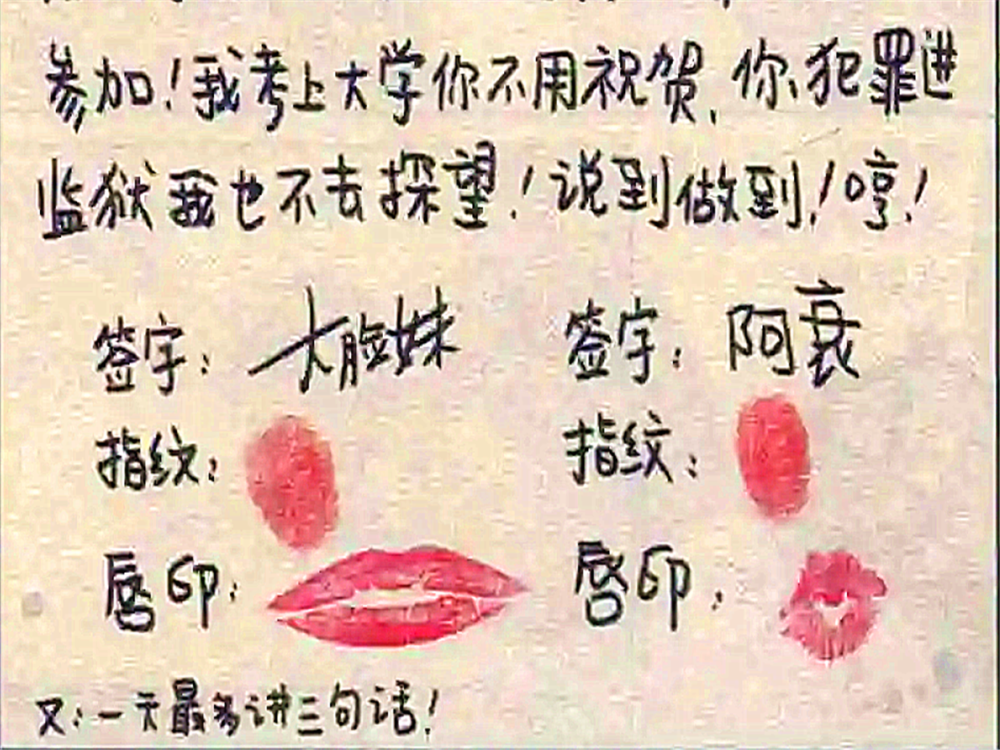 参加！我考上大学你不用祝贺，你犯罪进
监狱我也不去探望！说到做到！哼！
签字：大脸妹 签字：阿衰
指纹： 指纹：
唇印： 唇印：
又：一天最多讲三句话！